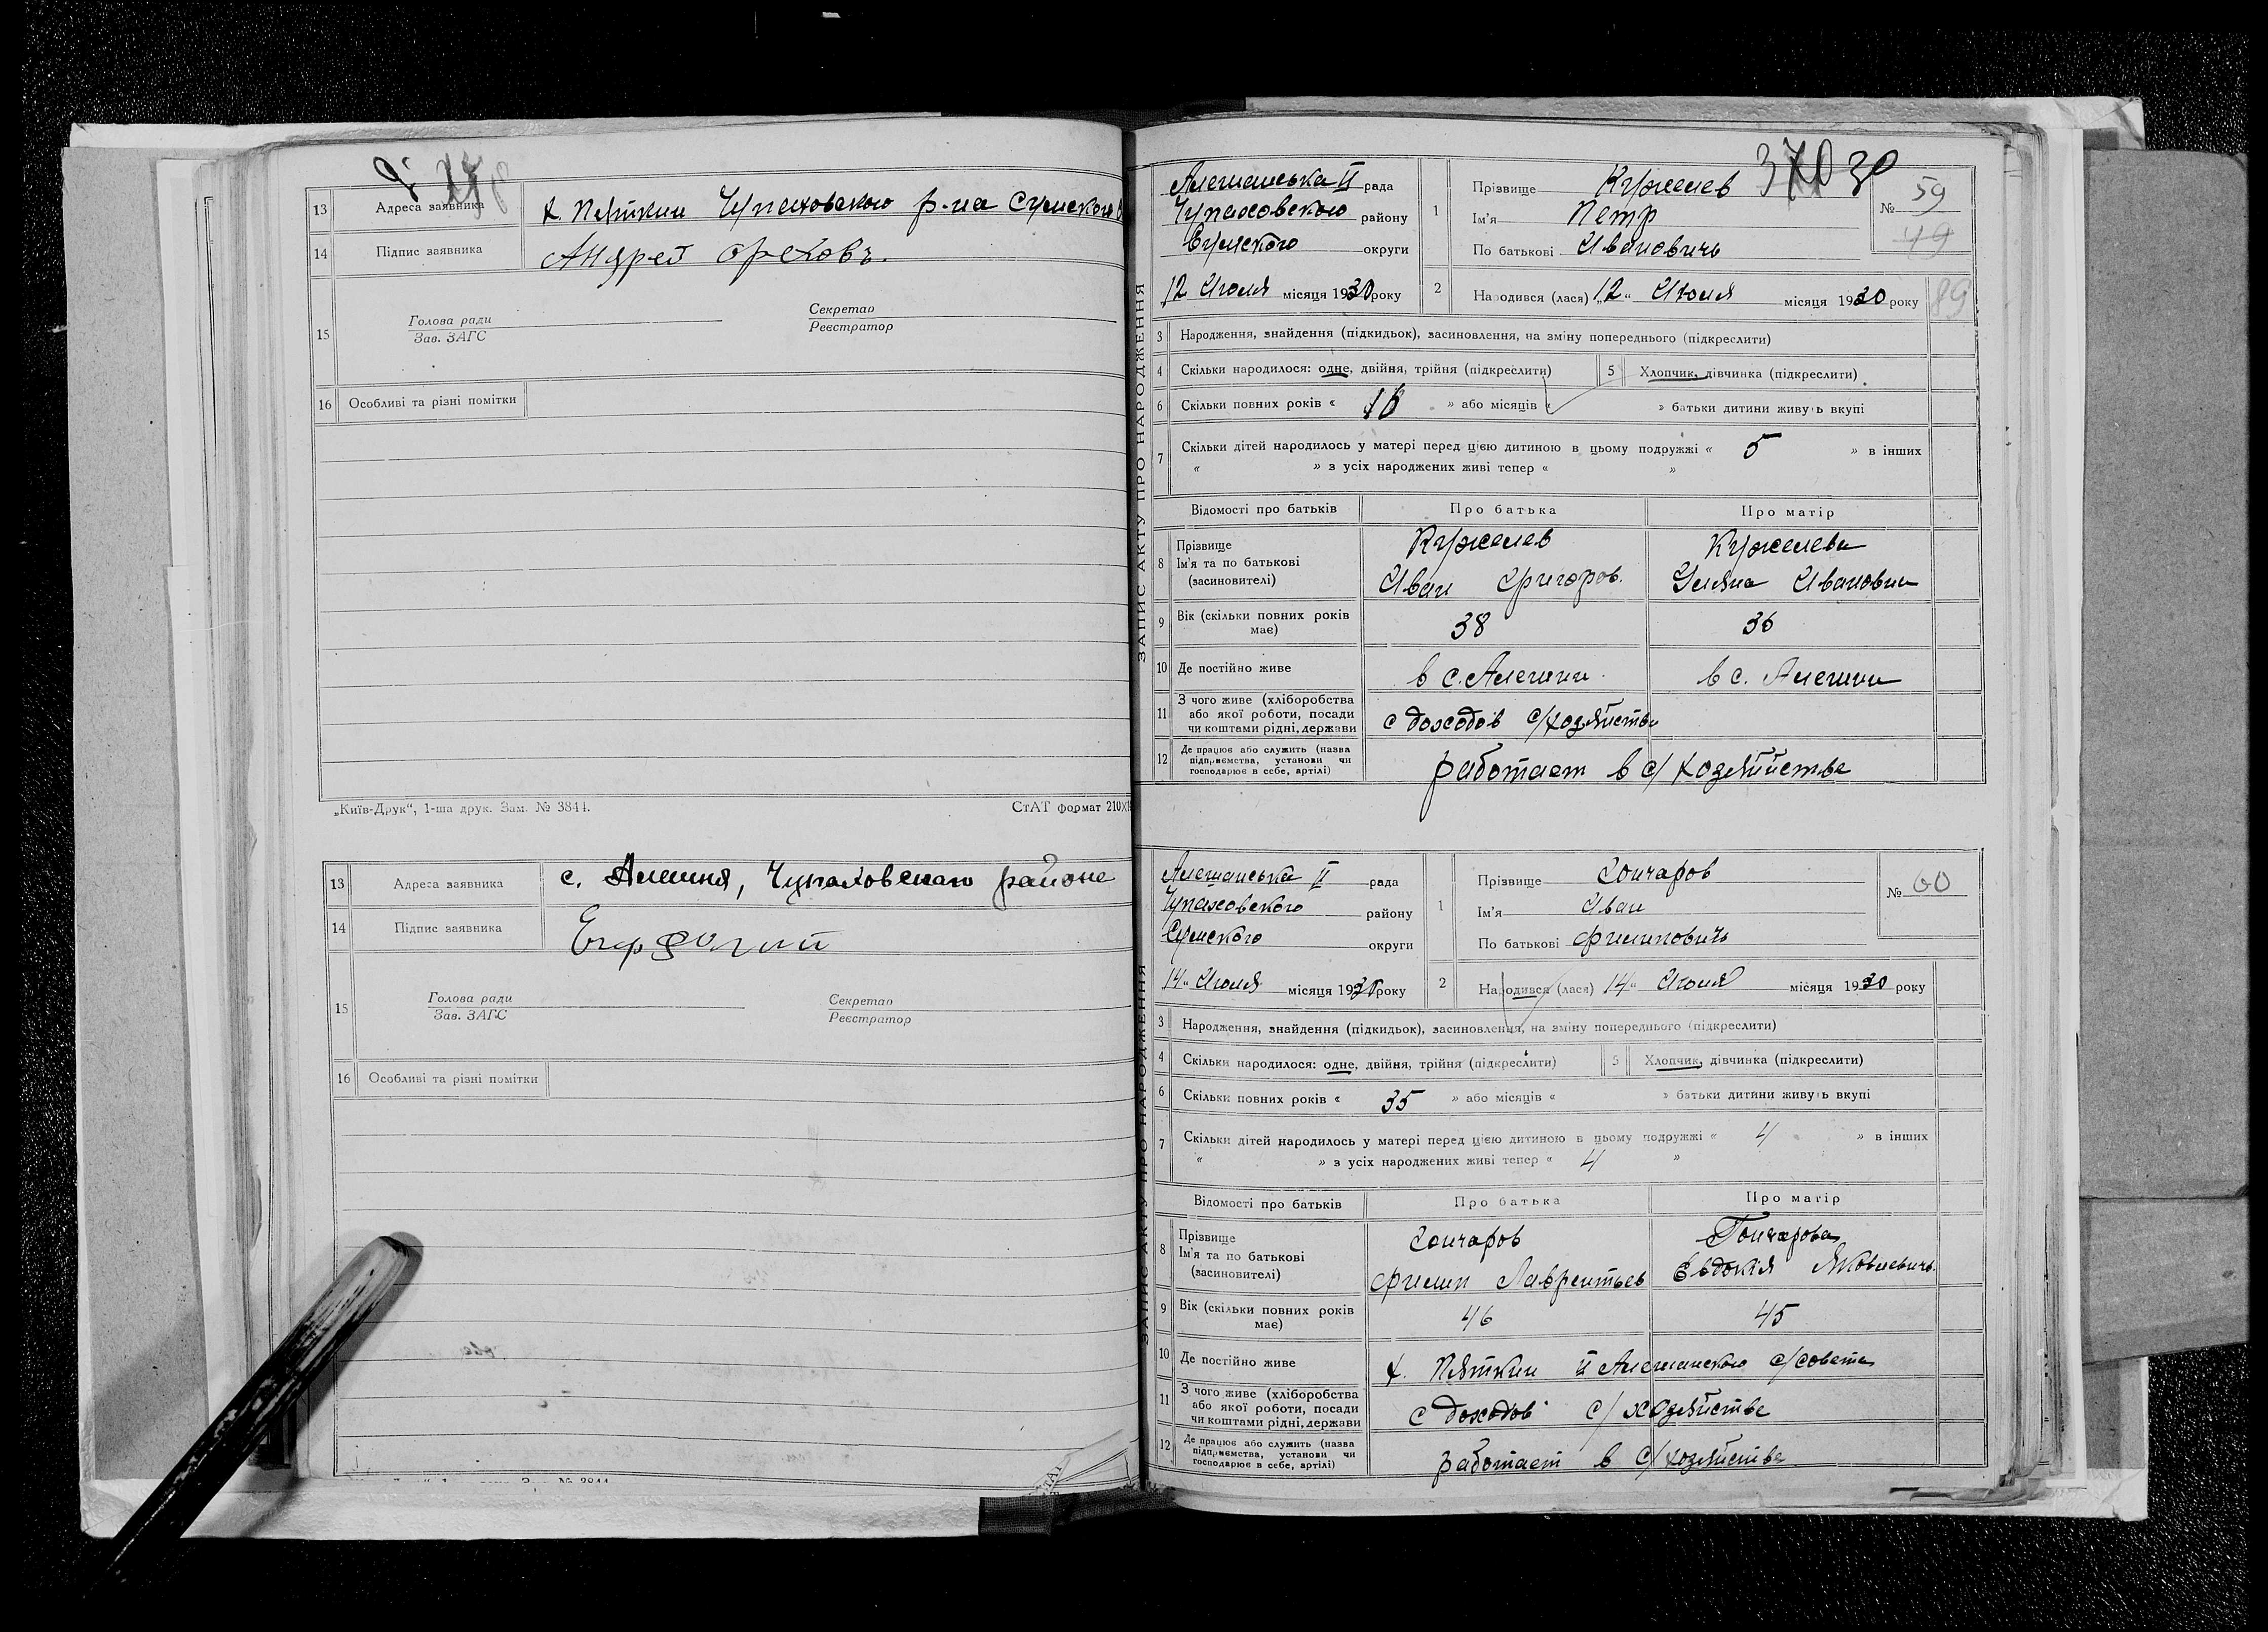 13 Адреса заявника х Пяткин Чупаховского р-на Сумского
14 Підпис заявника Андрей Ореховъ.
15 Голова ради
Зав. ЗАГС
Секретар
Реєстратор
16 Особливі та різні помітки
„Київ-Друк“, 1-ша друк. Зам. № 3844.
СтАТ формат 210X
13 Адреса заявника с. Алешня, Чупаховскаго районе
14 Підпис заявника
15 Голова ради
Зав. ЗАГС
Секретар
Реєстратор
16 Особливі та різні помітки
ЗАПИС АКТУ ПРО НАРОДЖЕННЯ
370 30
Алешанська II рада
Чупаховского району
Сумского округи
12 Июля місяця 1930 року
1 Прізвище Кужелев
Ім'я Петр
По батькові Ивановичь
№ 59
49
2 Народився (лася) „12“ Июля місяця 1930 року
89
3 Народження, знайдення (підкидьок), засиновлення, на зміну попереднього (підкреслити)
4 Скільки народилося: одне, двійня, трійня (підкреслити)
5 Хлопчик, дівчинка (підкреслити)
6 Скільки повних років « 16 » або місяців « » батьки дитини живуть вкупі
7 Скільки дітей народилось у матері перед цією дитиною в цьому подружжі « 5 » в інших
« » з усіх народжених живі тепер « »
Відомості про батьків Про батька Про матір
8 Прізвище Кужелев Кужелева
Ім'я та по батькові
(засиновителі) Иван Григоров. Уляна Ивановна
9 Вік (скільки повних років має) 38 36
10 Де постійно живе в с. Алешни в с. Алешни
11 З чого живе (хліборобства
або якої роботи, посади
чи коштами рідні, держави с доходов с/хозяйства
12 Де працює або служить (назва
підприємства, установи чи
господарює в себе, артілі) работает в с/хозяйстве
ЗАПИС АКТУ ПРО НАРОДЖЕННЯ
Алешанська II рада
Чупаховского району
Сумского округи
14“ Июля місяця 1930 року
1 Прізвище Гончаров
Ім'я Иван
По батькові Филиповичь
№ 60
2 Народився (лася) 14“ Июля місяця 1930 року
3 Народження, знайдення (підкидьок), засиновлення, на зміну попереднього (підкреслити)
4 Скільки народилося: одне, двійня, трійня (підкреслити)
5 Хлопчик, дівчинка (підкреслити)
6 Скільки повних років « 35 » або місяців « » батьки дитини живуть вкупі
7 Скільки дітей народилось у матері перед цією дитиною в цьому подружжі « 4 » в інших
« » з усіх народжених живі тепер « 4 »
Відомості про батьків Про батька Про матір
8 Прізвище Гончаров Гончарова
Ім'я та по батькові
(засиновителі) Филип Лаврентьев Евдокія Яковлевичь.
9 Вік (скільки повних років має) 46 45
10 Де постійно живе х. Пяткин II Алешанского с/совета
11 З чого живе (хліборобства
або якої роботи, посади
чи коштами рідні, держави с доходов с/хозяйстве
12 Де працює або служить (назва
підприємства, установи чи
господарює в себе, артілі) работает в с/хозяйстве